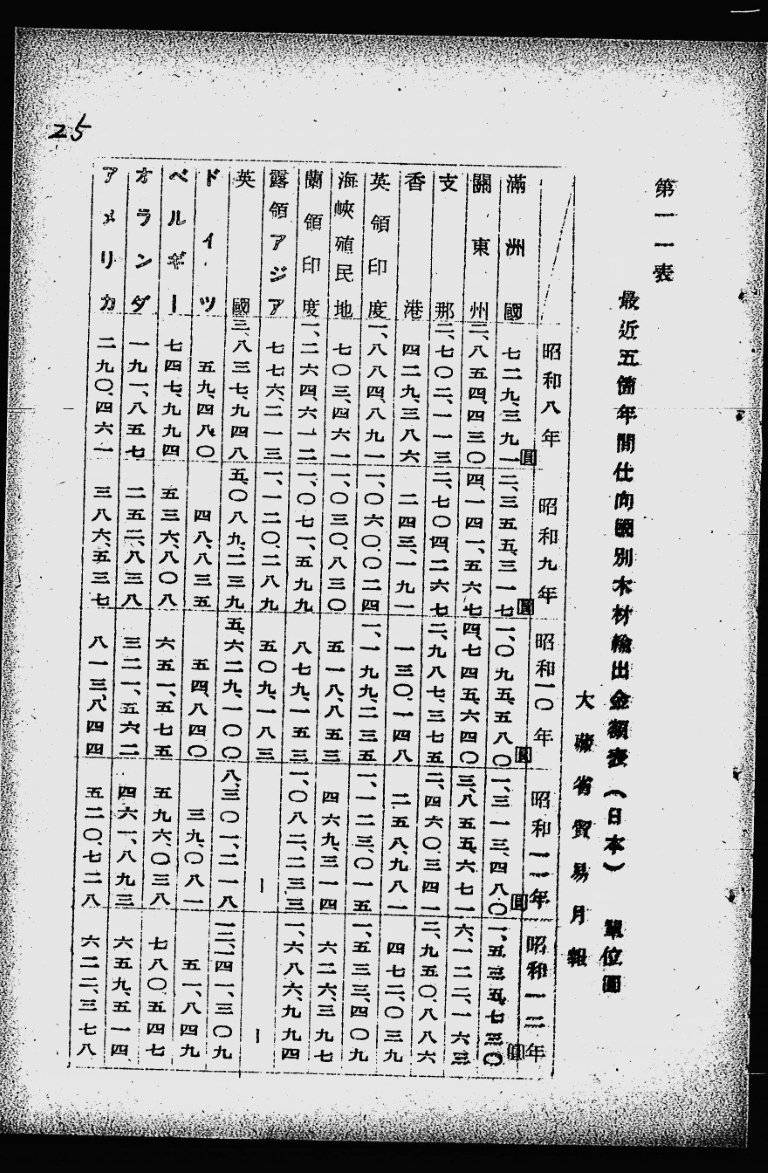 25
第一一表
最近五箇年間仕向國別木材輸出金額表（日本） 單位圓
大藏省貿易月報
昭和八年 昭和九年 昭和一〇年 昭和一一年 昭和一二年
滿洲國 七二九、三九一圓 二、三五五、三一七圓 一、〇九五、五八〇圓 一、三一三、四八〇圓 一、五三五、七三〇圓
關東州 三、八五四、四三〇 四、一四一、五六七 四、七四五、六四〇 三、八五五、六七一 六、一二二、一六三
支那 二、七〇二、一一三 二、七〇四、二六七 二、九八七、三七五 二、四六〇、三四一 二、九五〇、八八六
香港 四二九、三八六 二四三、一九一 一三〇、一四八 二五八、九八一 四七二、〇三九
英領印度 一、八八四、八九一 一、〇六〇、〇二四 一、一九九、二三五 一、一二三、〇一五 一、五三三、四〇九
海峽殖民地 七〇三、四六一 一、〇三〇、八三〇 五一八、八五三 四六九、三一四 六二六、三九七
蘭領印度 一、二六四、六一二 一、〇七一、五九九 八七九、一五三 一、〇八二、二三三 一、六八六、九九四
露領アジア 七七六、二一三 一、一二〇、二八九 五〇九、一八三 ｜ ｜
英國 三、八三七、九四八 五、〇八九、二三九 五、六二九、一〇〇 八、三〇一、二一八 一二、一四一、三〇九
ドイツ 五九、四八〇 四八、八三五 五四、八四〇 三九、〇八一 五一、八四九
ベルギー 七四七、九九四 五三六、八〇八 六五一、五七五 五九六、〇三八 七八〇、五四七
オランダ 一九一、八五七 二五二、八三八 三二一、五六二 四六一、八九三 六五九、五一四
アメリカ 二九〇、四六一 三八六、五三七 八一三、八四四 五二〇、七二八 六二二、三七八